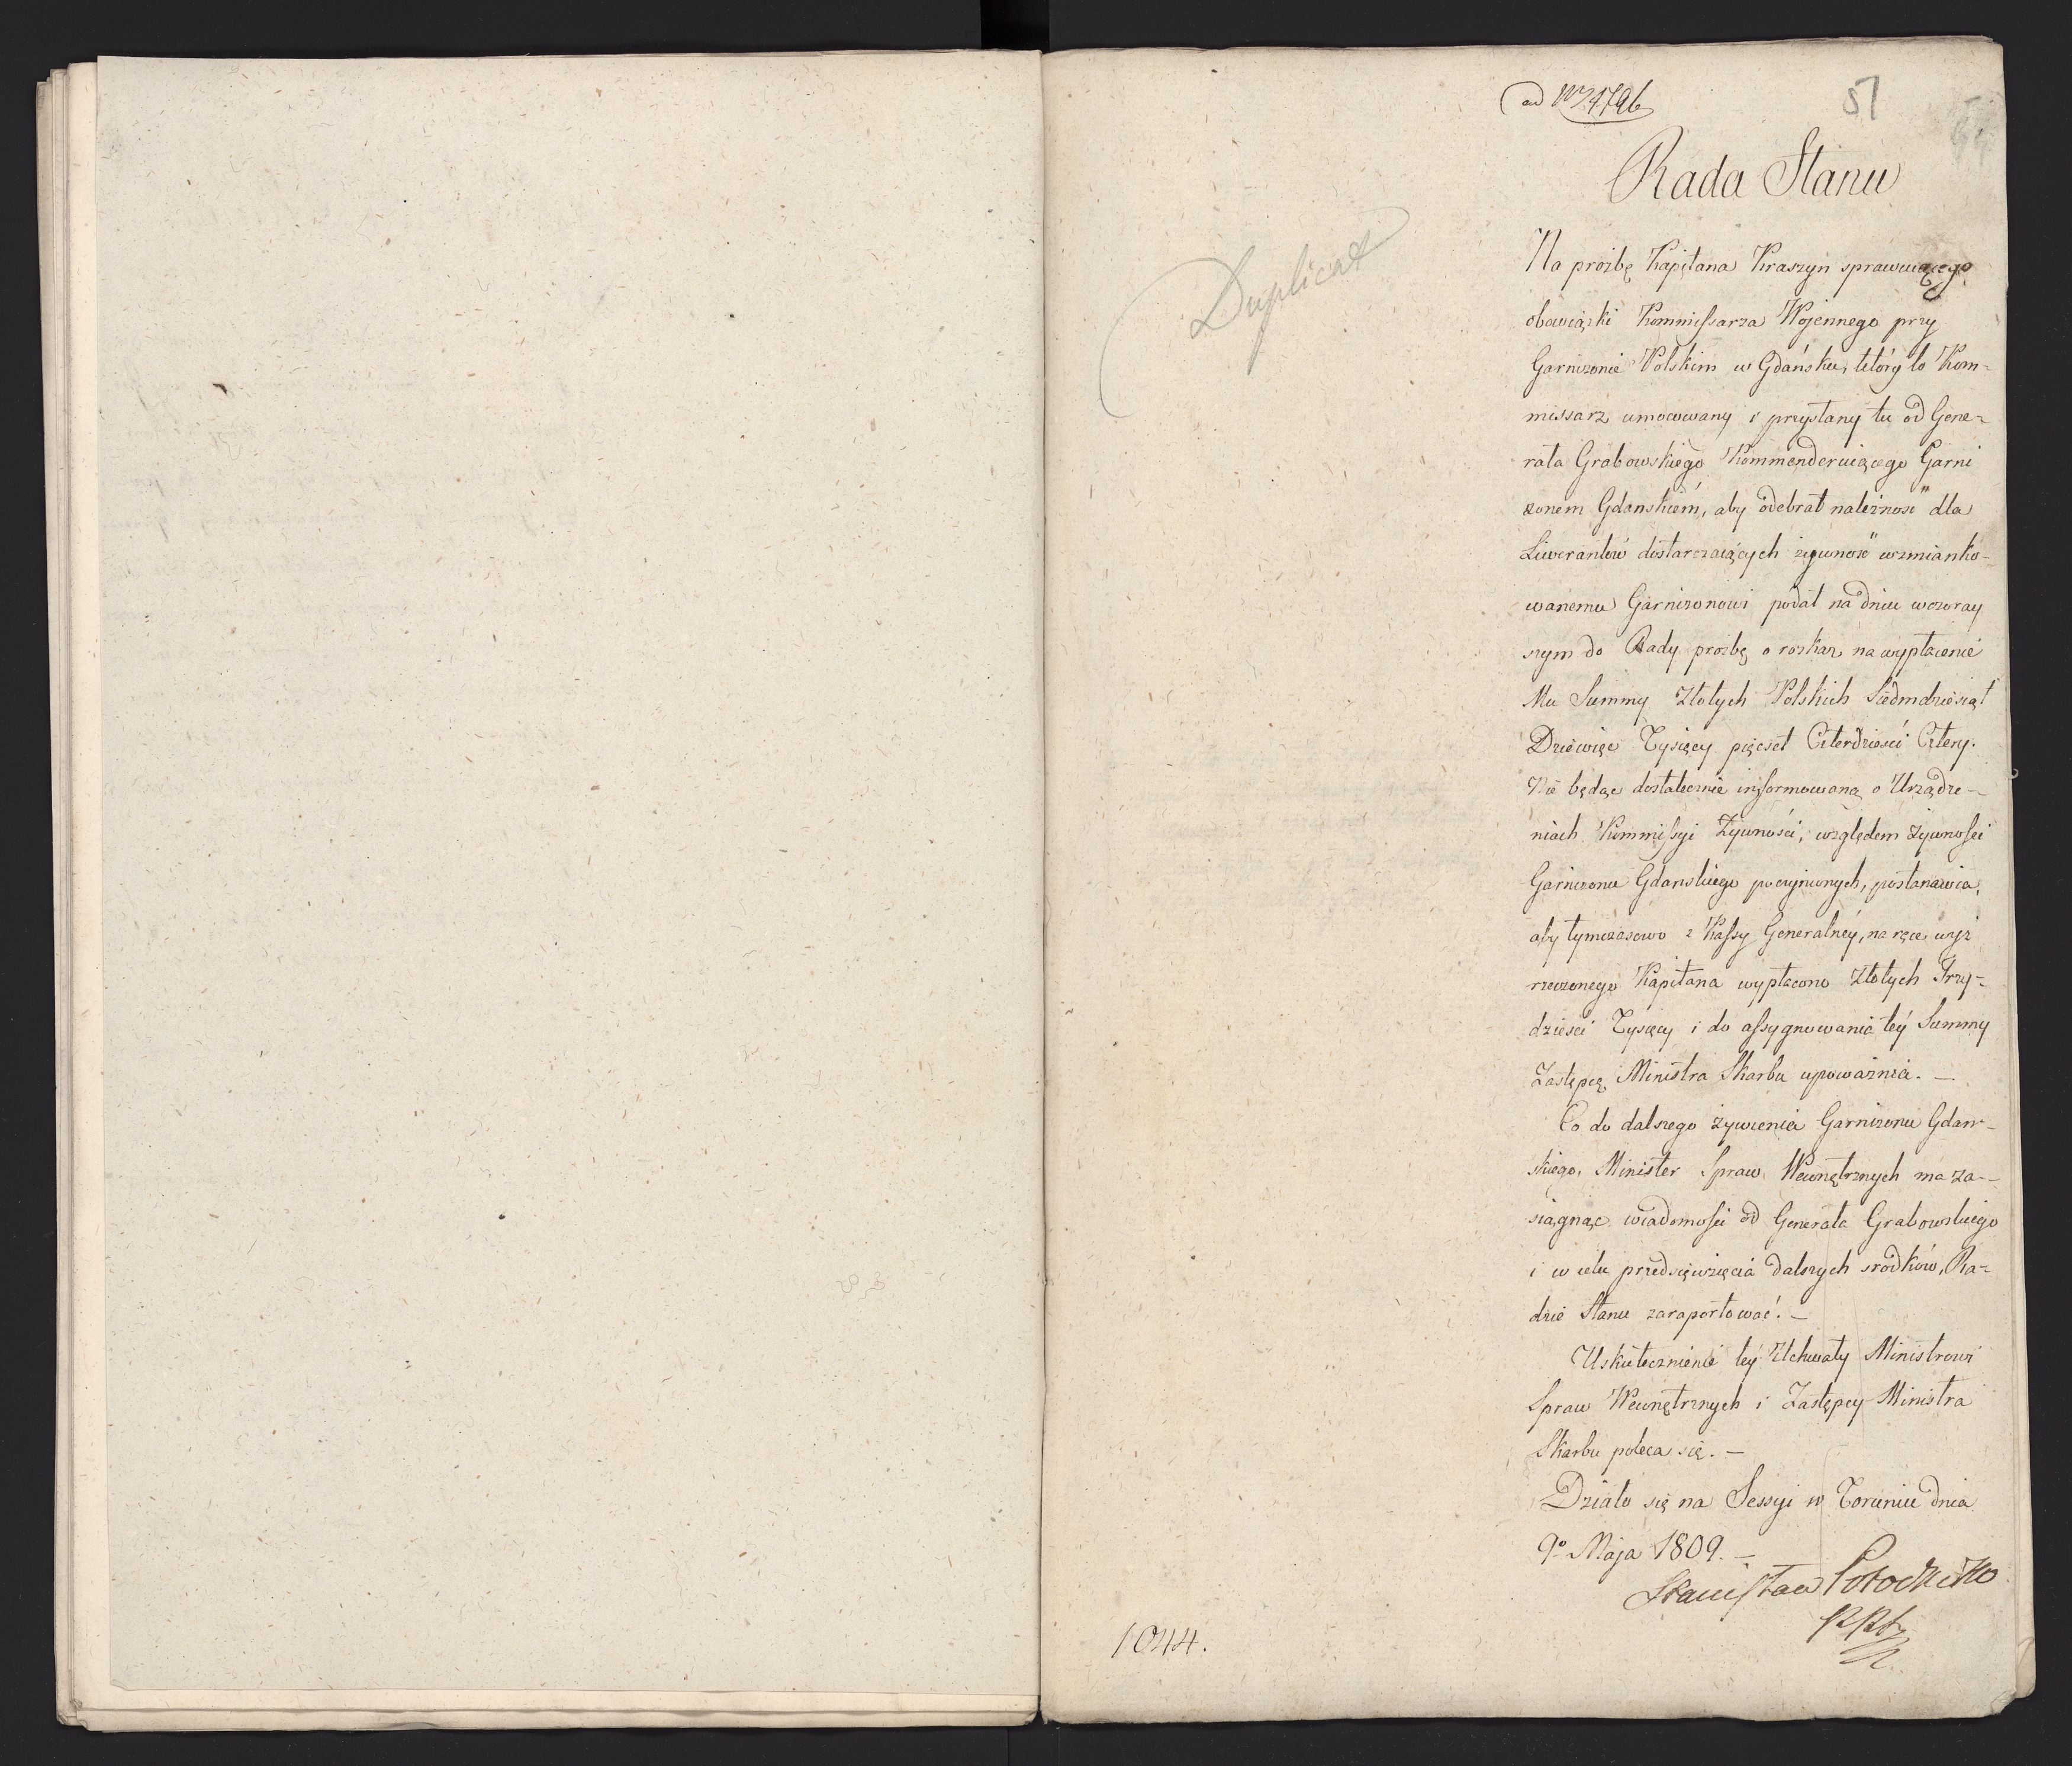 ad Nr 4796
51
Rada Stanu
Duplicat
Na prozbę Kapitana Kraszyn sprawuiącego
obowiązki Kommissarza Wojennego przy
Garnizonie Polskim w Gdańsku, któryto Kom-
missarz umocowany i przysłany tu od Gene-
rała Grabowskiego Kommenderuiącego Garni
zonem Gdanskiem, aby odebrał należność dla
Liwerantów dostarczaiących żywność wzmianko-
wanemu Garnizonowi podał na dniu wczoray
szym do Rady prozbę o rozkaz na wypłacenie
Mu Summy Złotych Polskich Siedmdziesiąt
Dziewięc Tysięcy pięcset Czterdziesci Cztery.
Nie będąc dostatecznie informowaną o Urządze-
niach Kommissyi Żywności, względem żywnosci
Garnizonu Gdanskiego poczynionych, postanawia,
aby tymczasowo z Kassy Generalnéy, na ręce wyż
rzeczonego Kapitana wypłacono Złotych Trzy-
dziesci Tysięcy i do assygnowania téy Summy
Zastępcę Ministra Skarbu upoważnia. —
Co do dalszego żywienia Garnizonu Gdan-
skiego, Minister Spraw Wewnętrznych ma za-
siągnąc wiadomosci od Generała Grabowskiego
i w celu przedsięwzięcia dalszych srodków, Ra-
dzie Stanu zaraportować. —
Uskutecznienie téy Uchwały Ministrowi
Spraw Wewnętrznych i Zastępcy Ministra
Skarbu poleca się. —
Działo się na Sessyi w Toruniu dnia
9º Maja 1809. —
Stanisław Potocki
1044.